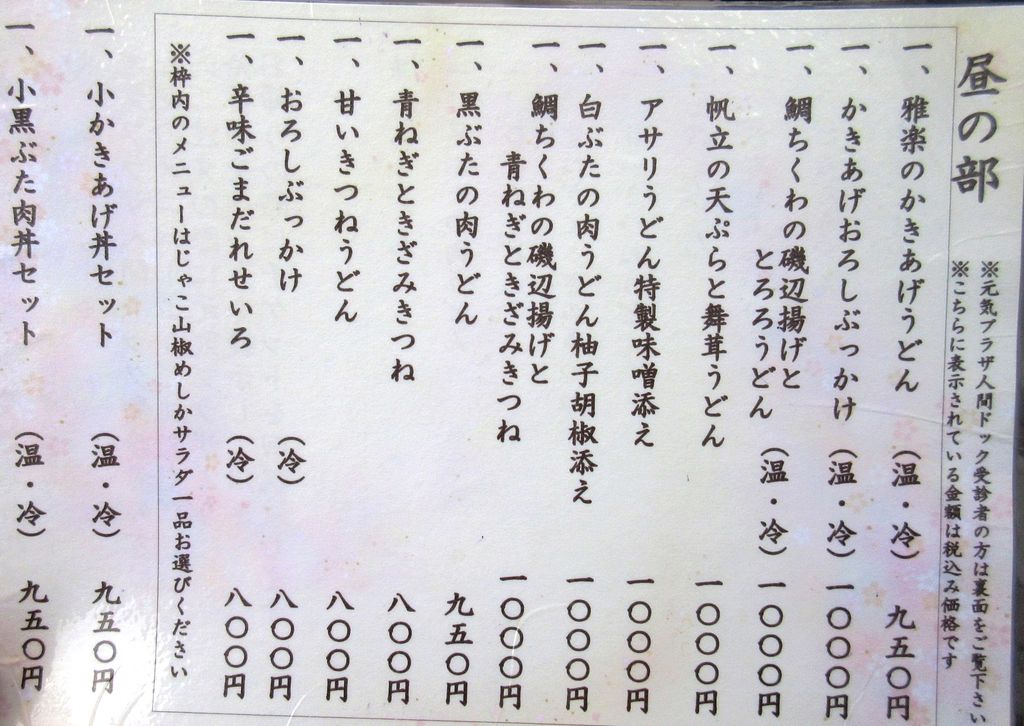 昼の部
※元気プラザ人間ドック受診者の方は裏面をご覧下さい
※こちらに表示されている金額は税込み価格です
一、雅楽のかきあげうどん（温・冷）九五〇円
一、かきあげおろしぶっかけ（温・冷）一〇〇〇円
一、鯛ちくわの磯辺揚げと
とろろうどん（温・冷）一〇〇〇円
一、帆立の天ぷらと舞茸うどん 一〇〇〇円
一、アサリうどん特製味噌添え 一〇〇〇円
一、白ぶたの肉うどん柚子胡椒添え 一〇〇〇円
一、鯛ちくわの磯辺揚げと
青ねぎときざみきつね 一〇〇〇円
一、黒ぶたの肉うどん 九五〇円
一、青ねぎときざみきつね 八〇〇円
一、甘いきつねうどん 八〇〇円
一、おろしぶっかけ（冷）八〇〇円
一、辛味ごまだれせいろ（冷）八〇〇円
※枠内のメニューはじゃこ山椒めしかサラダ一品お選びください
一、小かきあげ丼セット（温・冷）九五〇円
一、小黒ぶた肉丼セット（温・冷）九五〇円